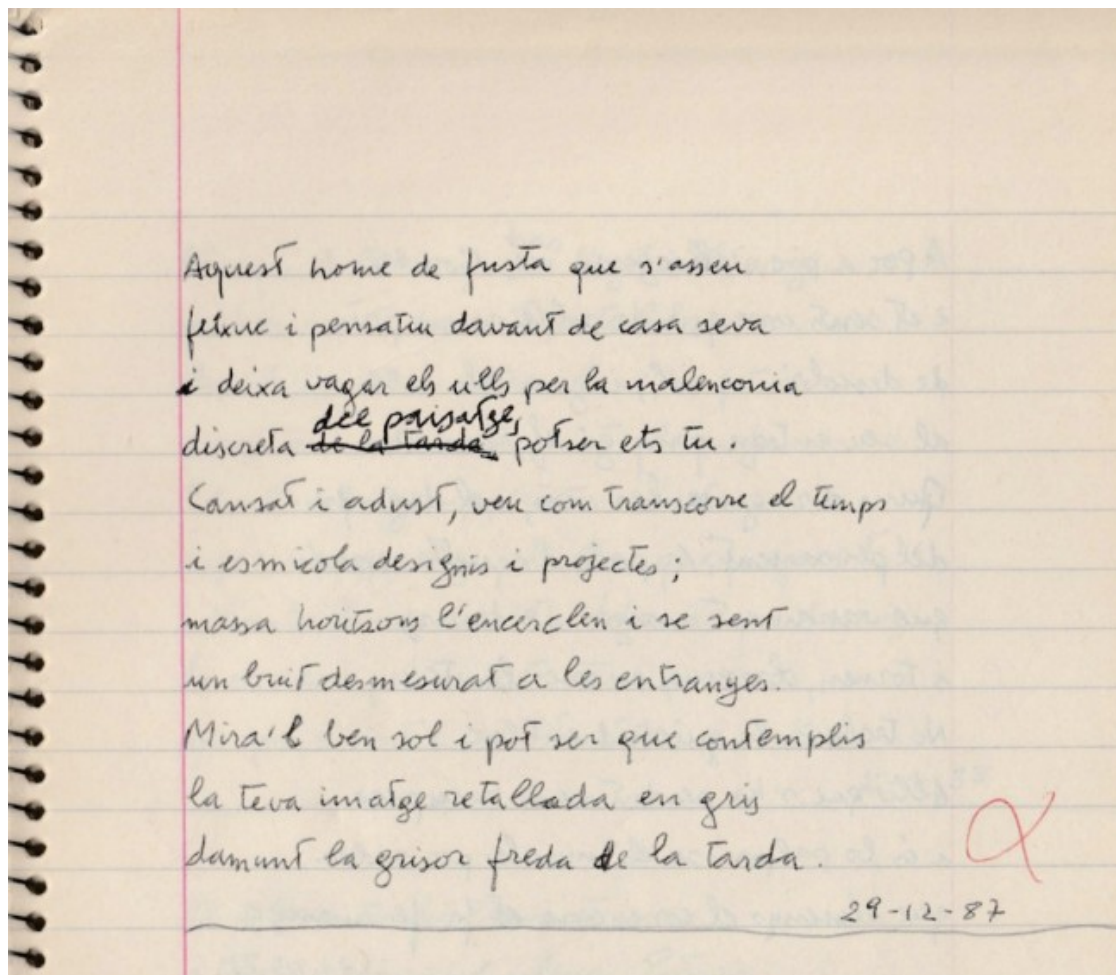 Aquest home de fusta que s'asseu
feixuc i pensatiu davant de casa seva
i deixa vagar els ulls per la malenconia
del paisatge,
discreta de la tarda, potser ets tu.
Cansat i adust, veu com transcorre el temps
i esmicola designis i projectes;
massa horitzons l'encerclen i se sent
un buit desmesurat a les entranyes.
Mira'l ben sol i pot ser que contemplis
la teva imatge retallada en gris
damunt la grisor freda de la tarda.
29-12-87